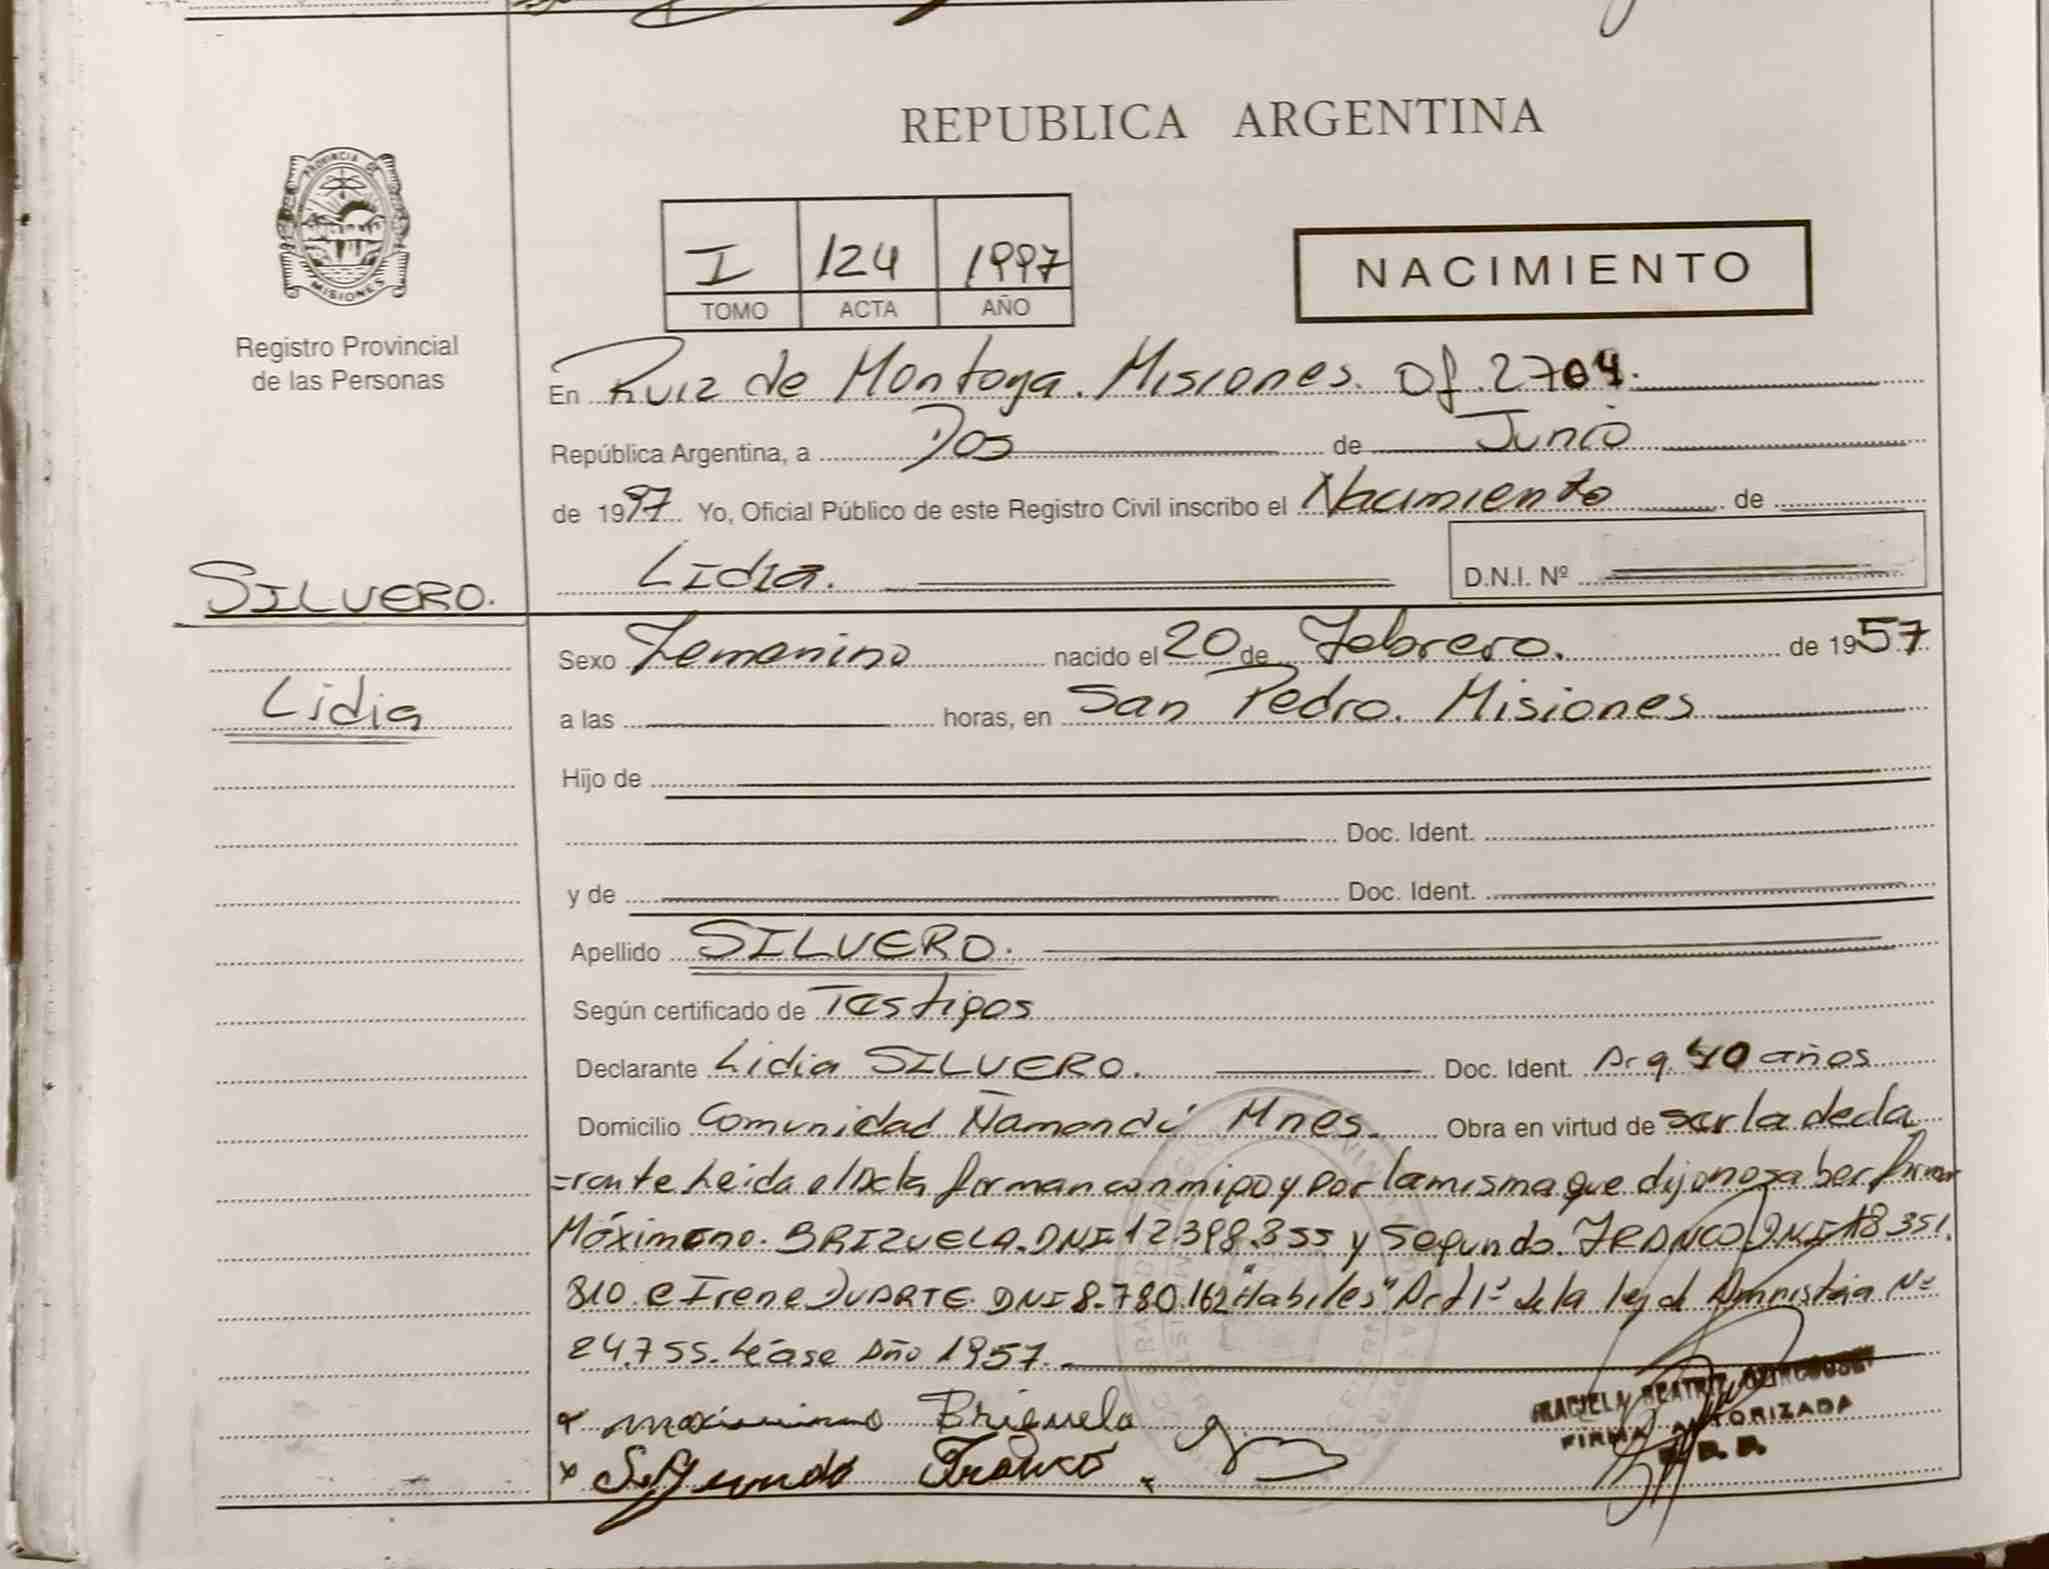 REPUBLICA ARGENTINA
PROVINCIA DE MISIONES
Registro Provincial
de las Personas
I 124 1997
TOMO ACTA AÑO
NACIMIENTO
En Ruiz de Montoya. Misiones. Of. 2704.
República Argentina, a Dos de Junio
de 1997 Yo, Oficial Público de este Registro Civil inscribo el Nacimiento de
Lidia. D.N.I. Nº
SILVERO.
Lidia
Sexo Femenino nacido el 20 de Febrero. de 1957
a las horas, en San Pedro. Misiones
Hijo de
Doc. Ident.
y de Doc. Ident.
Apellido SILVERO.
Según certificado de Testigos
Declarante Lidia SILVERO. Doc. Ident. Arg. 40 años
Domicilio Comunidad Ñamandú Mnes. Obra en virtud de ser la decla
=rante Leida el Acta firman conmigo y por la misma que dijo no saber firmar
Máximeno. BRIZUELA. DNI 12.398.355 y Segundo. FRANCO DNI 18 351.
810. e Irene DUARTE. DNI 8.780.162 "Habiles" Art 1º de la ley de Amnistia Nº
24.755. Léase Año 1957.
x maximino Brizuela
x Segundo Franco.
GRACIELA BEATRIZ
FIRMA AUTORIZADA